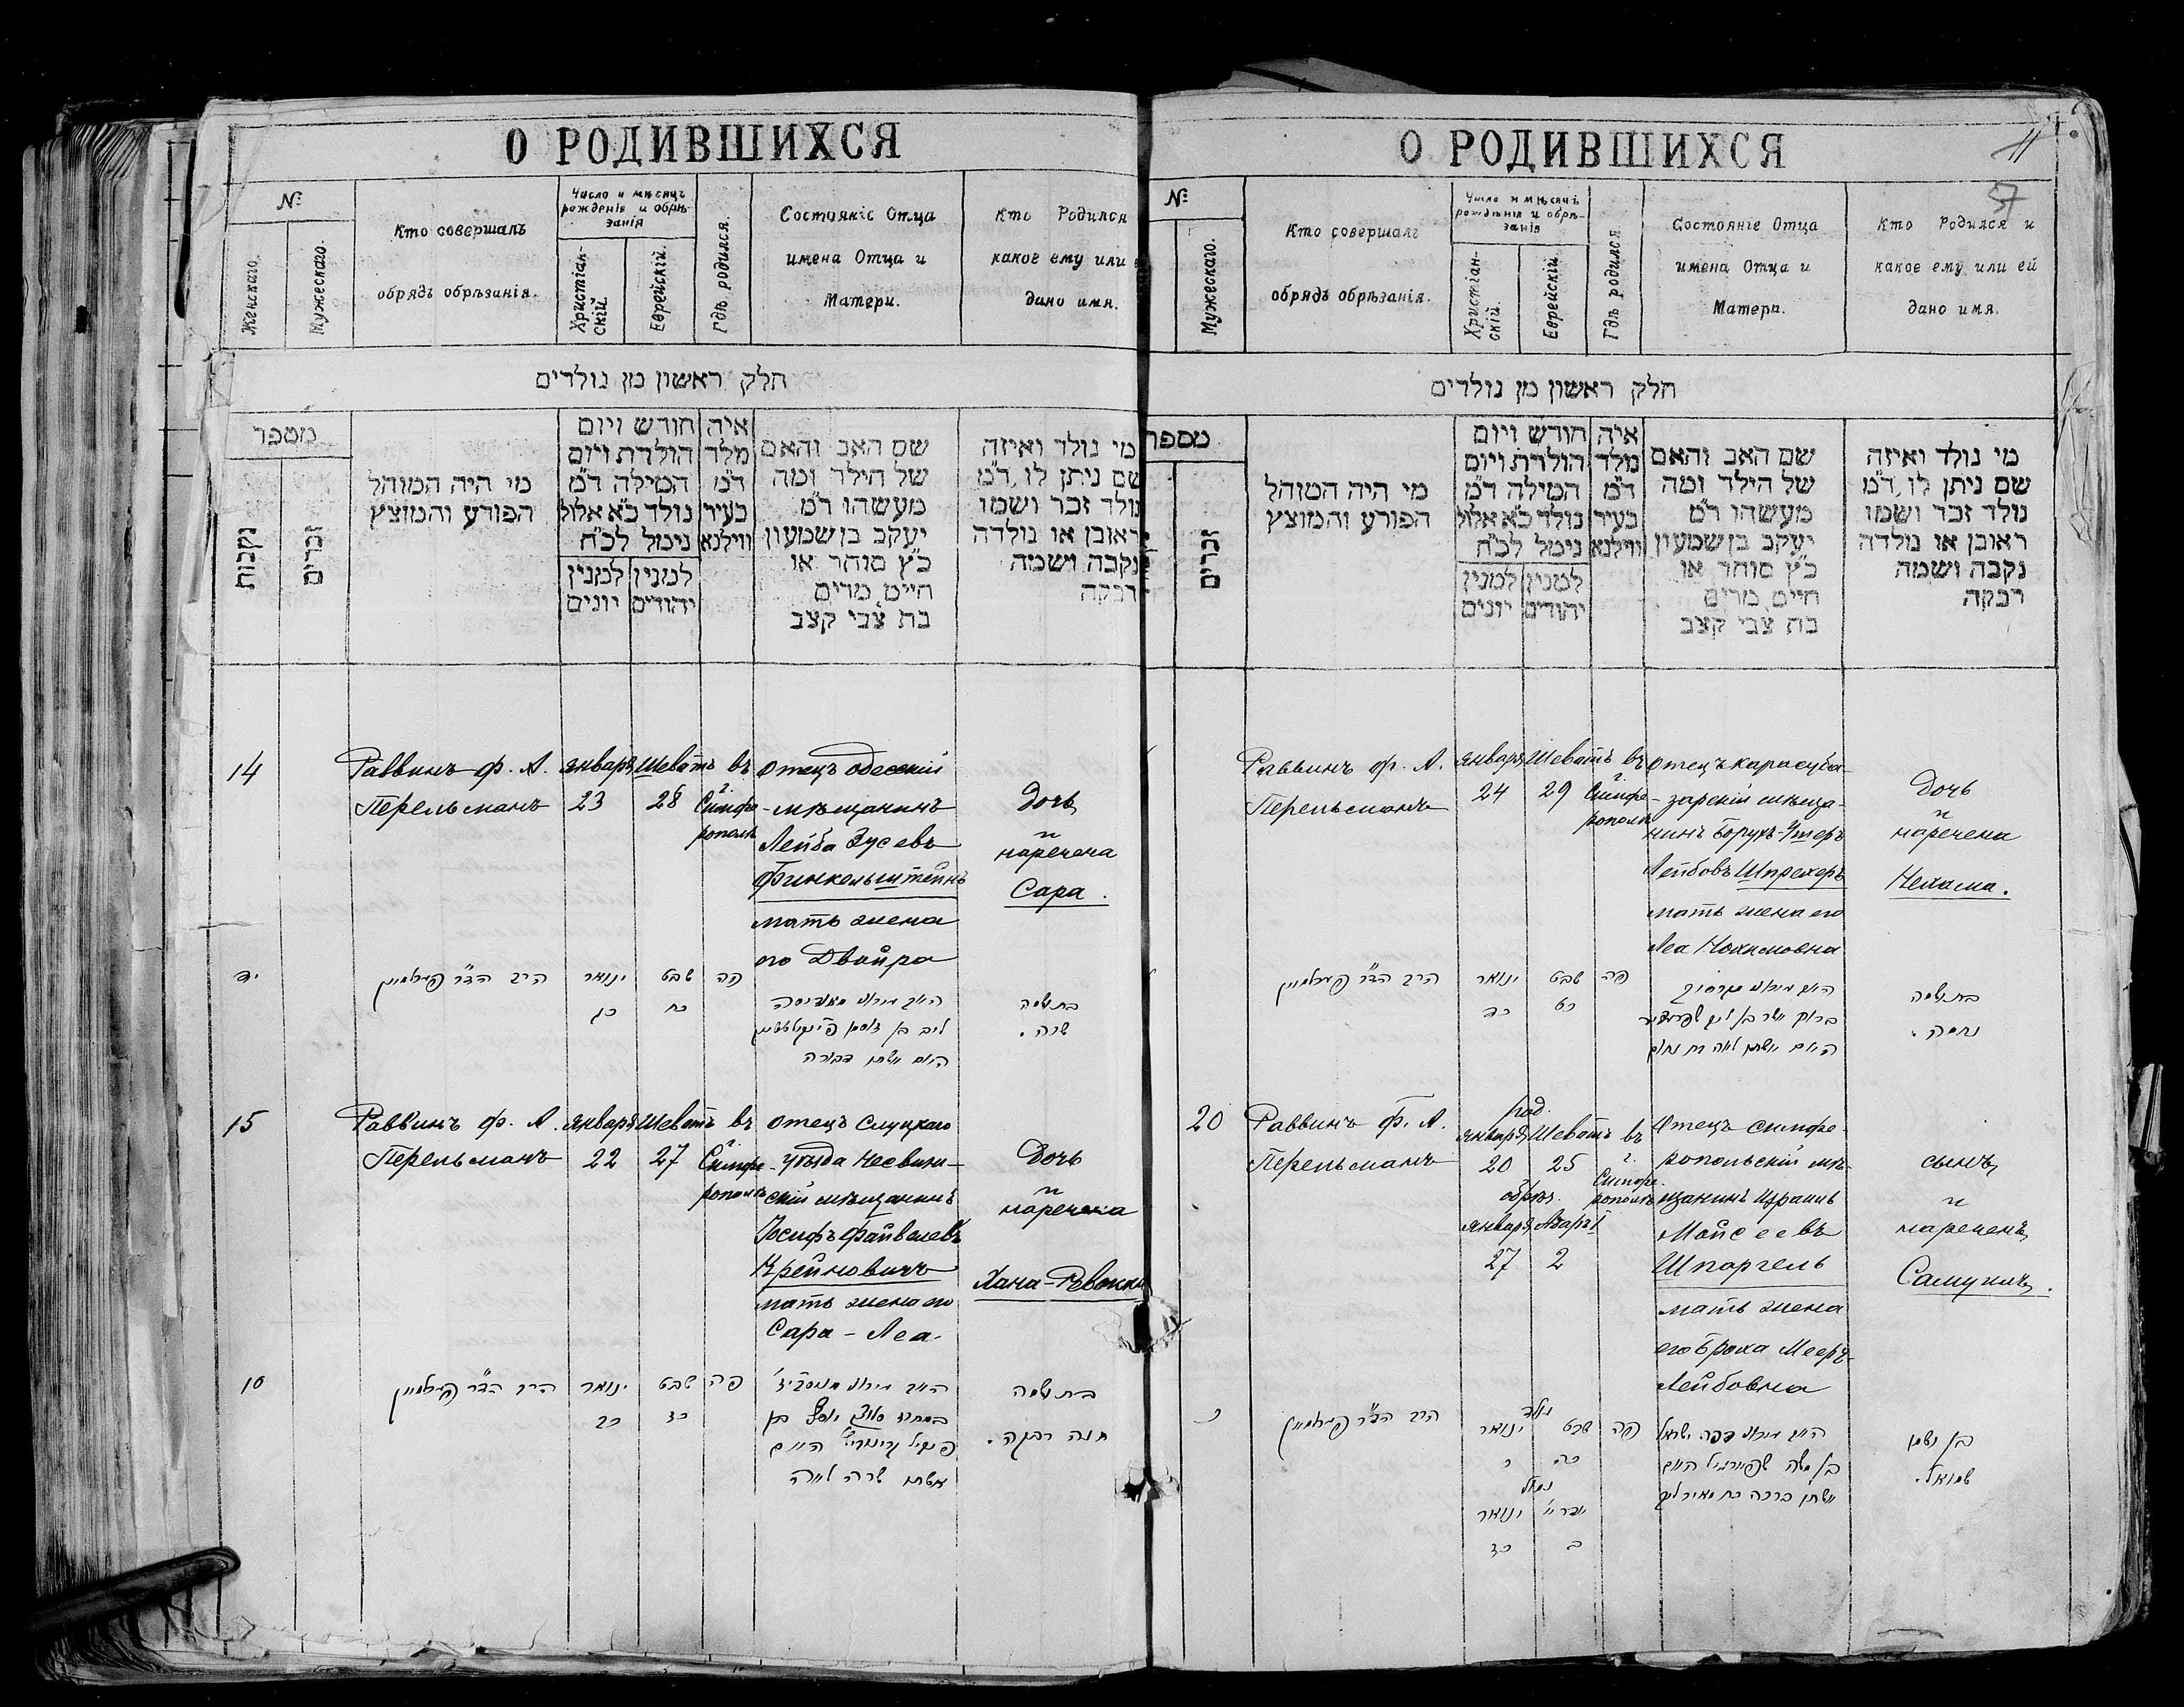 О РОДИВШИХСЯ
№
Женскаго.
Мужескаго.
Кто совершалъ
обрядъ обрѣзанія.
Число и мѣсяцъ
рожденія и обрѣ-
занія
Христіан-
скій.
Еврейскій.
Гдѣ родился.
Состояніе Отца
имена Отца и
Матери.
Кто Родился
какое ему или
дано имя.
חלק ראשון מן נולדים
מספר
נקבות
זכרים
מי היה המוהל
הפורע והמוצץ
חודש ויום
הולדת ויום
המילה ד״מ
נולד כ״א אלול
נימול לכ״ח
למנין
יהודים
למנין
יונים
איה
מלד
ד״מ
בעיר
ווילנא
שם האב והאם
של הילד ומה
מעשהו ד״מ
יעקב בן שמעון
כ״ץ סוחר או
חייט מרים
בת צבי קצב
מי נולד ואיזה
שם ניתן לו ד״מ
נולד זכר ושמו
ראובן או נולדה
נקבה ושמה
רבקה
14
Раввинъ Ф. А.
Перельманъ
Января
23
Шеватъ
28
въ
г.
Симфе-
рополѣ
Отецъ одесскій
мѣщанинъ
Лейба Зусевъ
Финкельштейнъ
мать жена
его Двойра
Дочь
и
наречена
Сара.
יד
הרב הד״ר פערלמאן
ינואר
כג
שבט
כח
פה
בת ושמה
שרה.
15
Раввинъ Ф. А.
Перельманъ
Января
22
Шеватъ
27
въ
г.
Симфе-
рополѣ
Отецъ Слуцкаго
уѣзда Несвиж-
скій мѣщанинъ
Іосифъ Файвелевъ
Крейновичъ
мать жена его
Сара-Леа
Дочь
и
наречена
Хана-Ревекка
הרב הד״ר פערלמאן
ינואר
כב
שבט
כז
פה
אשתו שרה לאה
בת ושמה
חנה רבקה.
О РОДИВШИХСЯ
11
57
№
Мужескаго.
Кто совершалъ
обрядъ обрѣзанія.
Число и мѣсяцъ
рожденія и обрѣ-
занія
Христіан-
скій.
Еврейскій
Гдѣ родился
Состояніе Отца
имена Отца и
Матери.
Кто Родился и
какое ему или ей
дано имя.
חלק ראשון מן נולדים
מספר
זכרים
מי היה המוהל
הפורע והמוצץ
חודש ויום
הולדת ויום
המילה ד״מ
נולד כ״א אלול
נימול לכ״ח
למנין
יהודים
למנין
יונים
איה
מלד
ד״מ
בעיר
ווילנא
שם האב והאם
של הילד ומה
מעשהו ד״מ
יעקב בן שמעון
כ״ץ סוחר או
חייט מרים
בת צבי קצב
מי נולד ואיזה
שם ניתן לו ד״מ
נולד זכר ושמו
ראובן או נולדה
נקבה ושמה
רבקה
Раввинъ Ф. А.
Перельманъ
Января
24
Шеватъ
29
въ
г.
Симфе-
рополѣ
Отецъ карасуба-
зарскій мѣща-
нинъ Борухъ-Ушеръ
Лейбовъ Шпрехеръ
мать жена его
Леа Нохимовна
Дочь
и
наречена
Нехама.
הרב הד״ר פערלמאן
ינואר
כד
שבט
כט
פה
בת ושמה
נחמה.
20
Раввинъ Ф. А.
Перельманъ
род.
Января
20
Шеватъ
25
обрѣз.
Января
27
Адаръ I
2
въ
г.
Симфе-
рополѣ
Отецъ симфе-
ропольскій мѣ-
щанинъ Израиль
Мойсеевъ
Шпоргель
мать жена
его Броха Мееръ-
Лейбовна
сынъ
и
нареченъ
Самуилъ.
כ
הרב הד״ר פערלמאן
נולד
ינואר
כ
שבט
כה
נמול
ינואר
כז
אדר א׳
ב
פה
בן ושמו
שמואל.